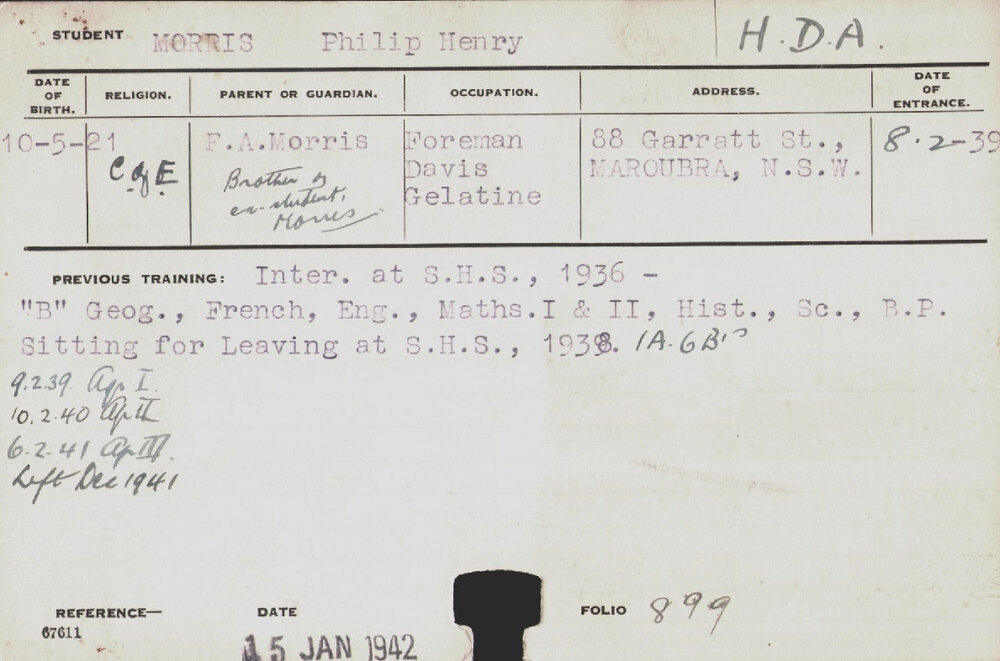 STUDENT MORRIS Philip Henry H.D.A.
DATE OF BIRTH. RELIGION. PARENT OR GUARDIAN. OCCUPATION. ADDRESS. DATE OF ENTRANCE.
10-5-21 C of E F.A.Morris Foreman 88 Garratt St., 8.2-39
Brother of Davis MAROUBRA, N.S.W.
ex-student, Gelatine
Morris
PREVIOUS TRAINING: Inter. at S.H.S., 1936 -
"B" Geog., French, Eng., Maths.I & II, Hist., Sc., B.P.
Sitting for Leaving at S.H.S., 1938. 1A-6B's
9.2.39. Ag. I.
10.2.40 Ag. II
6.2.41 Ag. III.
Left Dec 1941
REFERENCE— DATE FOLIO 899
67611
15 JAN 1942